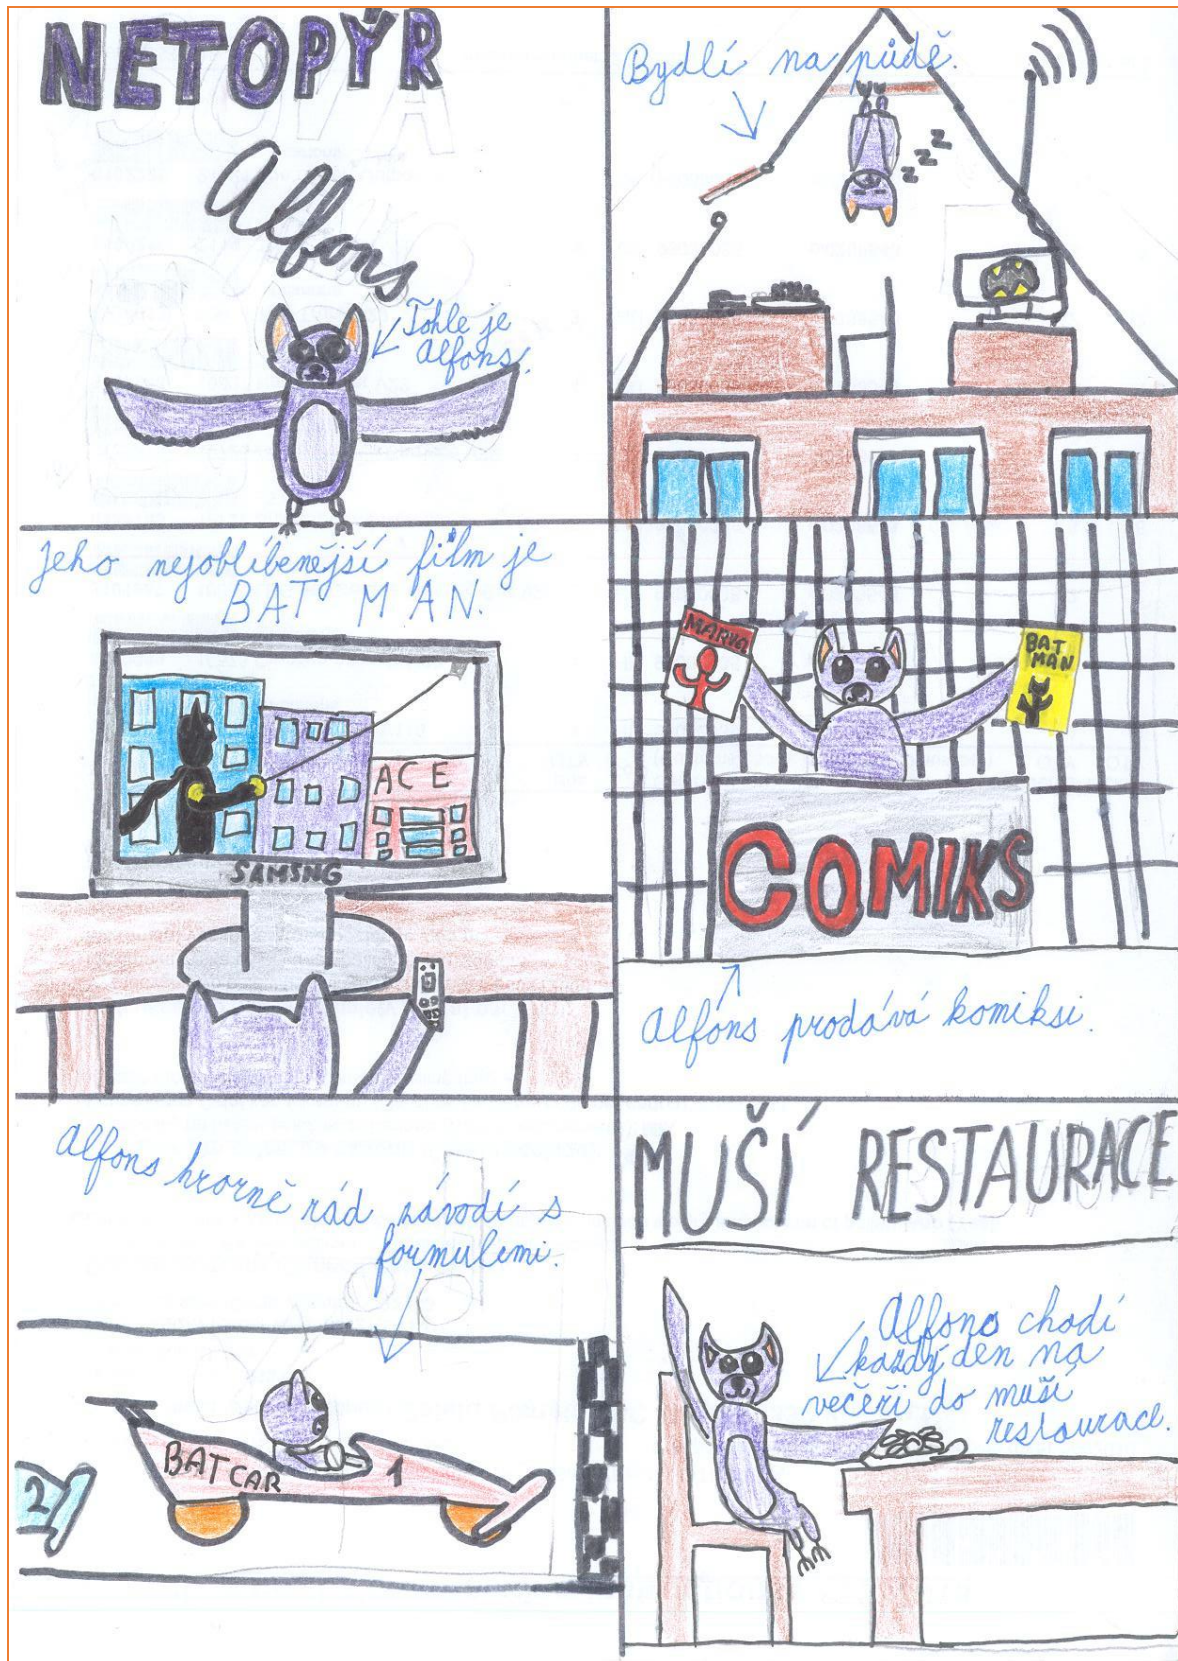 NETOPÝR
Alfons
Tohle je
Alfons!
Bydlí na půdě.
z z z
Jeho nejoblíbenější film je
BAT MAN.
ACE
SAMSNG
MARVEL
BAT
MAN
COMIKS
Alfons prodává komiksi.
Alfons hrorně rád závodí s
formulemi.
2
BATCAR
1
MUŠÍ RESTAURACE
Alfons chodí
každý den na
večěři do muší
restaurace.